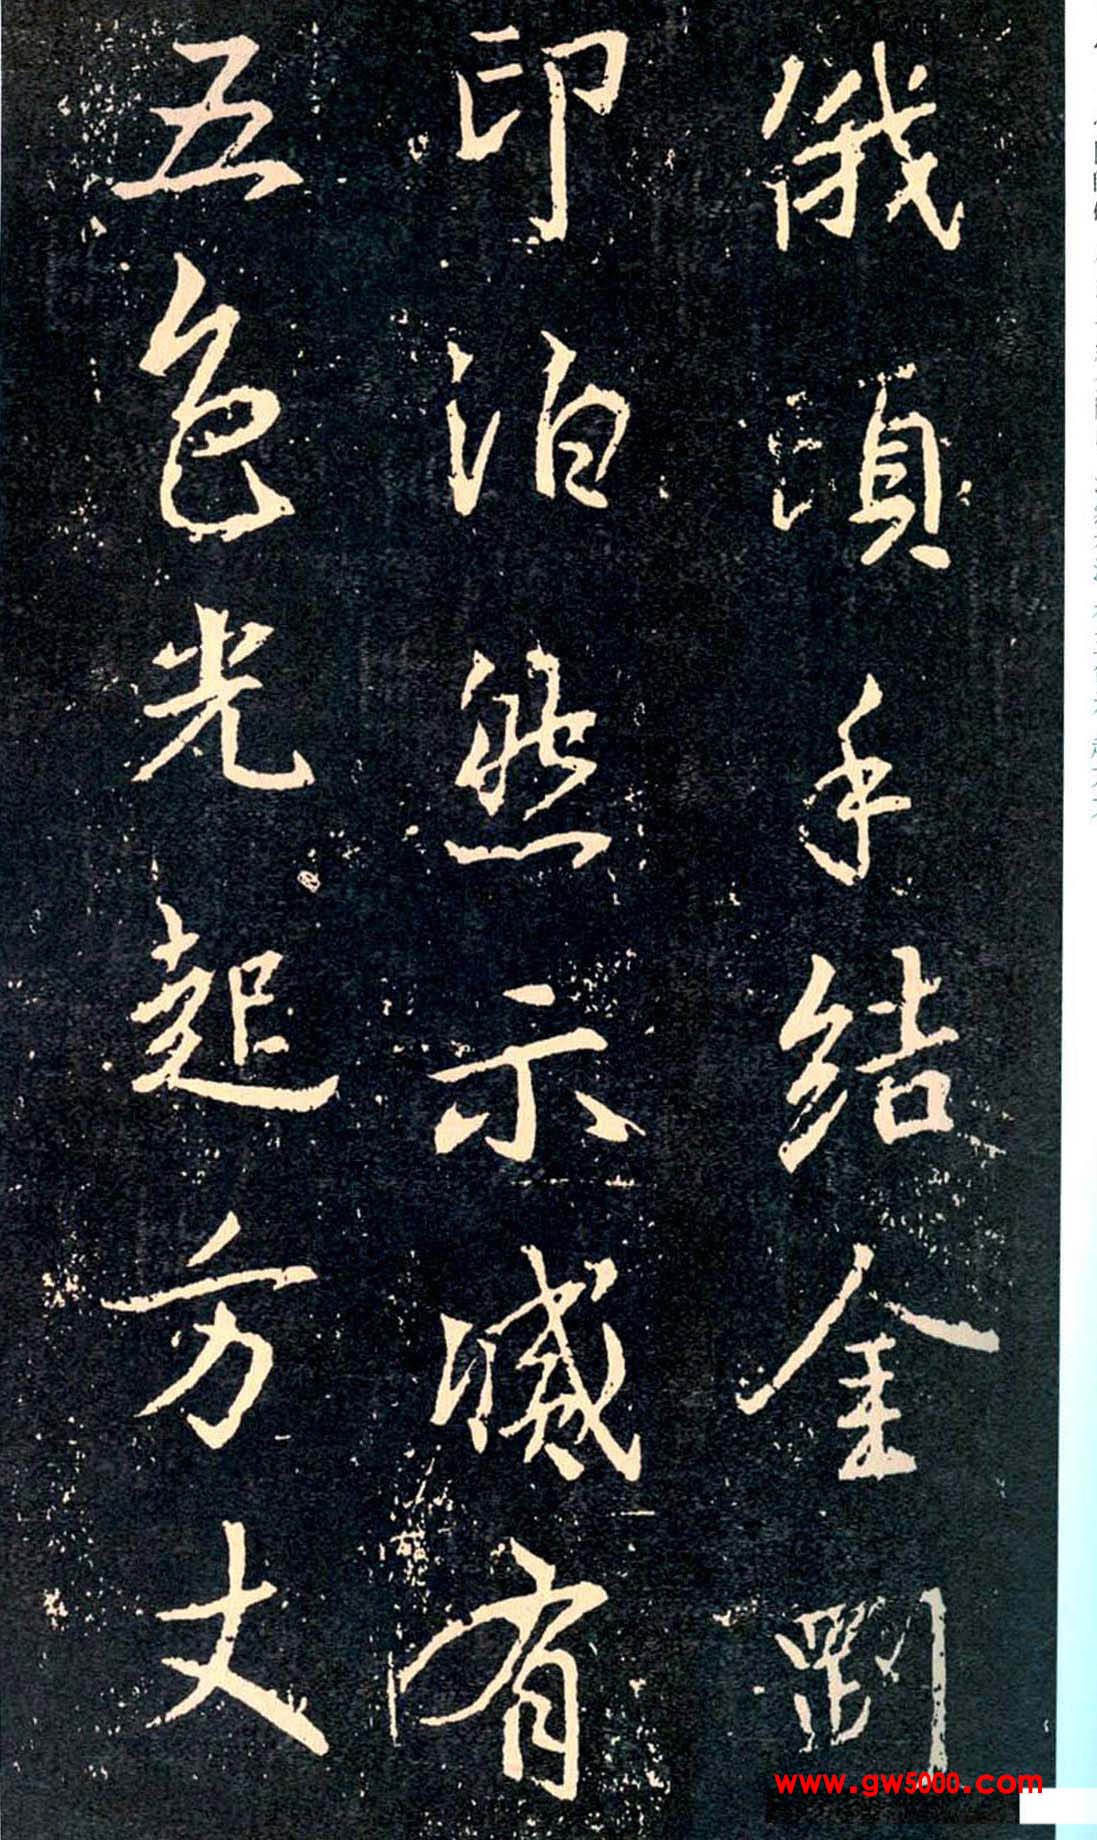 俄頃手結金剛
印泊然示滅有
五色光起方丈
www.gw5000.com